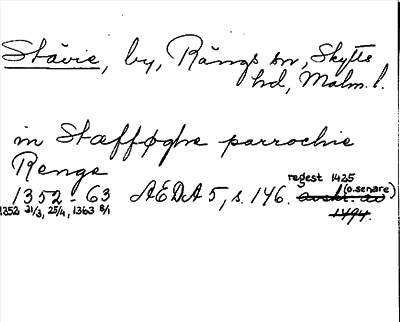 Stävie, by, Rängs sn, Skytts
hd, Malm. l.
in Stæfføghe parrochie
Renge
1352-63 AEDA 5, s. 146. regest 1425
(o. senare)
avskr. av
1494.
1352 31/3, 25/4, 1363 8/1